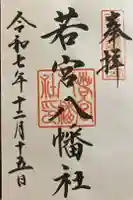 奉拝
若宮八幡社
令和七年十二月十五日